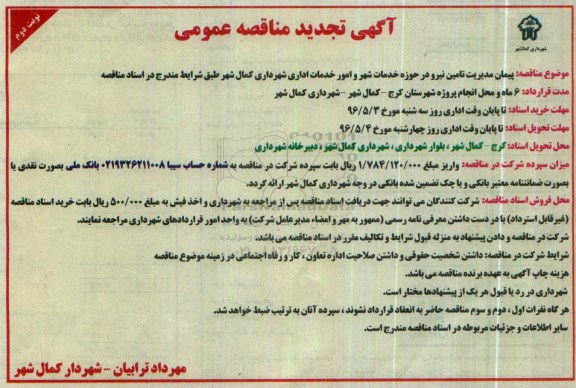 نوبت دوم
آگهی تجدید مناقصه عمومی
شهرداری کمالشهر
موضوع مناقصه: پیمان مدیریت تامین نیرو در حوزه خدمات شهر و امور خدمات اداری شهرداری کمال شهر طبق شرایط مندرج در اسناد مناقصه
مدت قرارداد: ۶ ماه و محل انجام پروژه شهرستان کرج - کمال شهر - شهرداری کمال شهر
مهلت خرید اسناد: تا پایان وقت اداری روز سه شنبه مورخ ۹۶/۵/۳
مهلت تحویل اسناد: تا پایان وقت اداری روز چهارشنبه مورخ ۹۶/۵/۴
محل تحویل اسناد: کرج - کمال شهر، بلوار شهرداری، شهرداری کمال شهر، دبیرخانه شهرداری
میزان سپرده شرکت در مناقصه: واریز مبلغ ۱/۷۸۴/۱۲۰/۰۰۰ ریال بابت سپرده شرکت در مناقصه به شماره حساب سیبا ۰۲۱۹۳۲۶۲۱۱۰۰۸ بانک ملی بصورت نقدی یا
بصورت ضمانتنامه معتبر بانکی و یا چک تضمین شده بانکی در وجه شهرداری کمال شهر ارائه گردد.
محل فروش اسناد مناقصه: شرکت کنندگان می توانند جهت دریافت اسناد مناقصه پس از مراجعه به شهرداری و اخذ فیش به مبلغ ۵۰۰/۰۰۰ ریال بابت خرید اسناد مناقصه
(غیرقابل استرداد) با در دست داشتن معرفی نامه رسمی (ممهور به مهر و امضاء مدیرعامل شرکت) به واحد امور قراردادهای شهرداری مراجعه نمایند.
شرکت در مناقصه و دادن پیشنهاد به منزله قبول شرایط و تکالیف مقرر در اسناد مناقصه می باشد.
شرایط شرکت در مناقصه: داشتن شخصیت حقوقی و داشتن صلاحیت اداره تعاون، کار و رفاه اجتماعی در زمینه موضوع مناقصه
هزینه چاپ آگهی به عهده برنده مناقصه می باشد.
شهرداری در رد یا قبول هر یک از پیشنهادها مختار است.
هر گاه نفرات اول، دوم و سوم مناقصه حاضر به انعقاد قرارداد نشوند، سپرده آنان به ترتیب ضبط خواهد شد.
سایر اطلاعات و جزئیات مربوطه در اسناد مناقصه مندرج است.
مهرداد ترابیان - شهردار کمال شهر